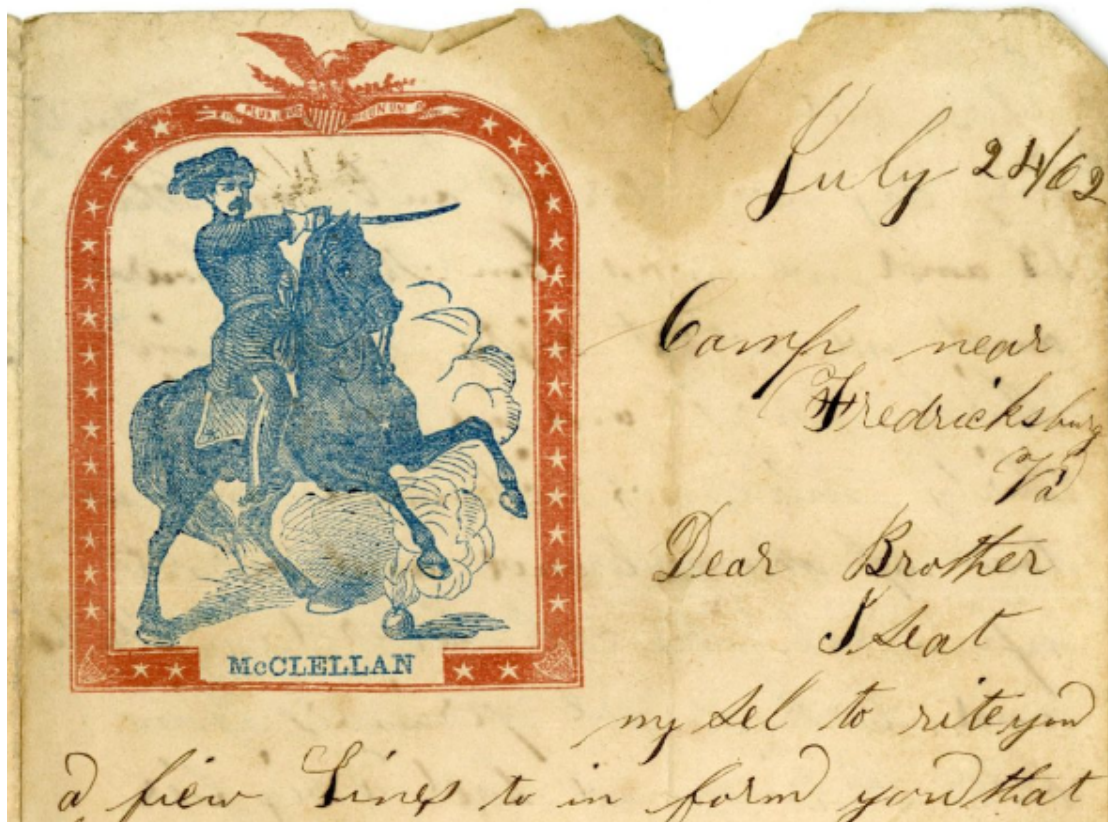 E PLURIBUS UNUM
McCLELLAN
July 24/62
Camp near
Fredricksburg
Va
Dear Brother
I seat
my sel to rite you
a fiew Lines to in form you that